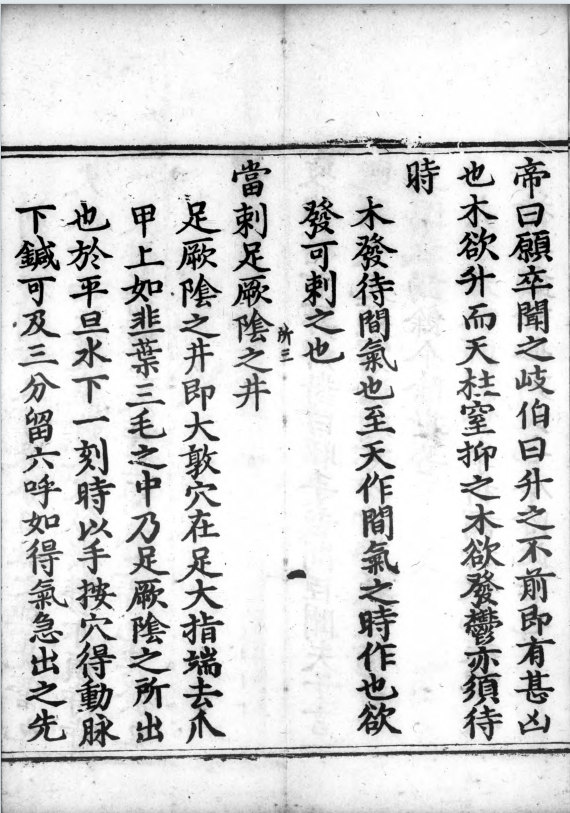 帝曰願卒聞之岐伯曰升之不前即有甚凶
也木欲升而天柱窒抑之木欲發鬱亦須待
時
木發待間氣也至天作間氣之時作也欲
發可刺之也
當刺足厥陰之井
所三
足厥陰之井即大敦穴在足大指端去爪
甲上如韭葉三毛之中乃足厥陰之所出
也於平旦水下一刻時以手按穴得動脉
下鍼可及三分留六呼如得氣急出之先